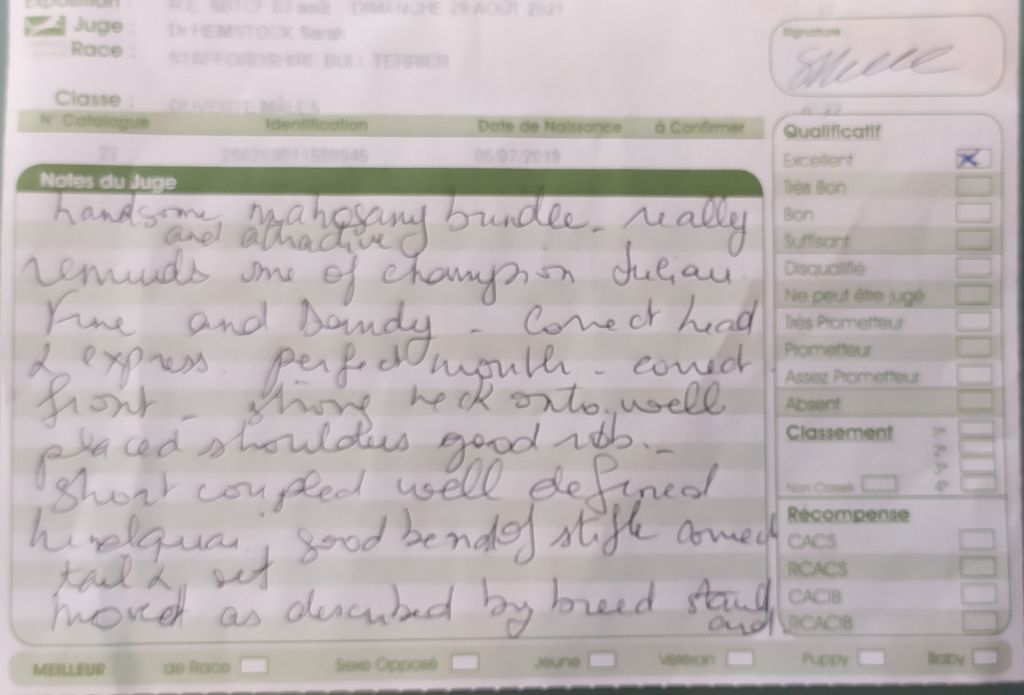 Exposition : R.E. SBTCF 83 août - DIMANCHE 29 AOUT 2021
Juge : Dr HEMSTOCK Sarah
Race : STAFFORDSHIRE BULL TERRIER
Signature :
Classe : OUVERTE MÂLES
n° 27
N° Catalogue Identification Date de Naissance à Confirmer
27 05/07/2019
Notes du Juge
handsome mahogany bundle - really
and attractive
reminds me of champion Julian
Fine and Dandy - Correct head
& express. perfect mouth - correct
front - strong neck onto well
placed shoulders good rib -
Short coupled well defined
hindquar, good bend of stifle correct
tail & set
moved as described by breed stand
and
Qualificatif
Excellent
Très Bon
Bon
Suffisant
Disqualifié
Ne peut être jugé
Très Prometteur
Prometteur
Assez Prometteur
Absent
Classement
1er
2e
3e
4e
Non Classé
Récompense
CACS
RCACS
CACIB
RCACIB
MEILLEUR de Race Sexe Opposé Jeune Vétéran Puppy Baby